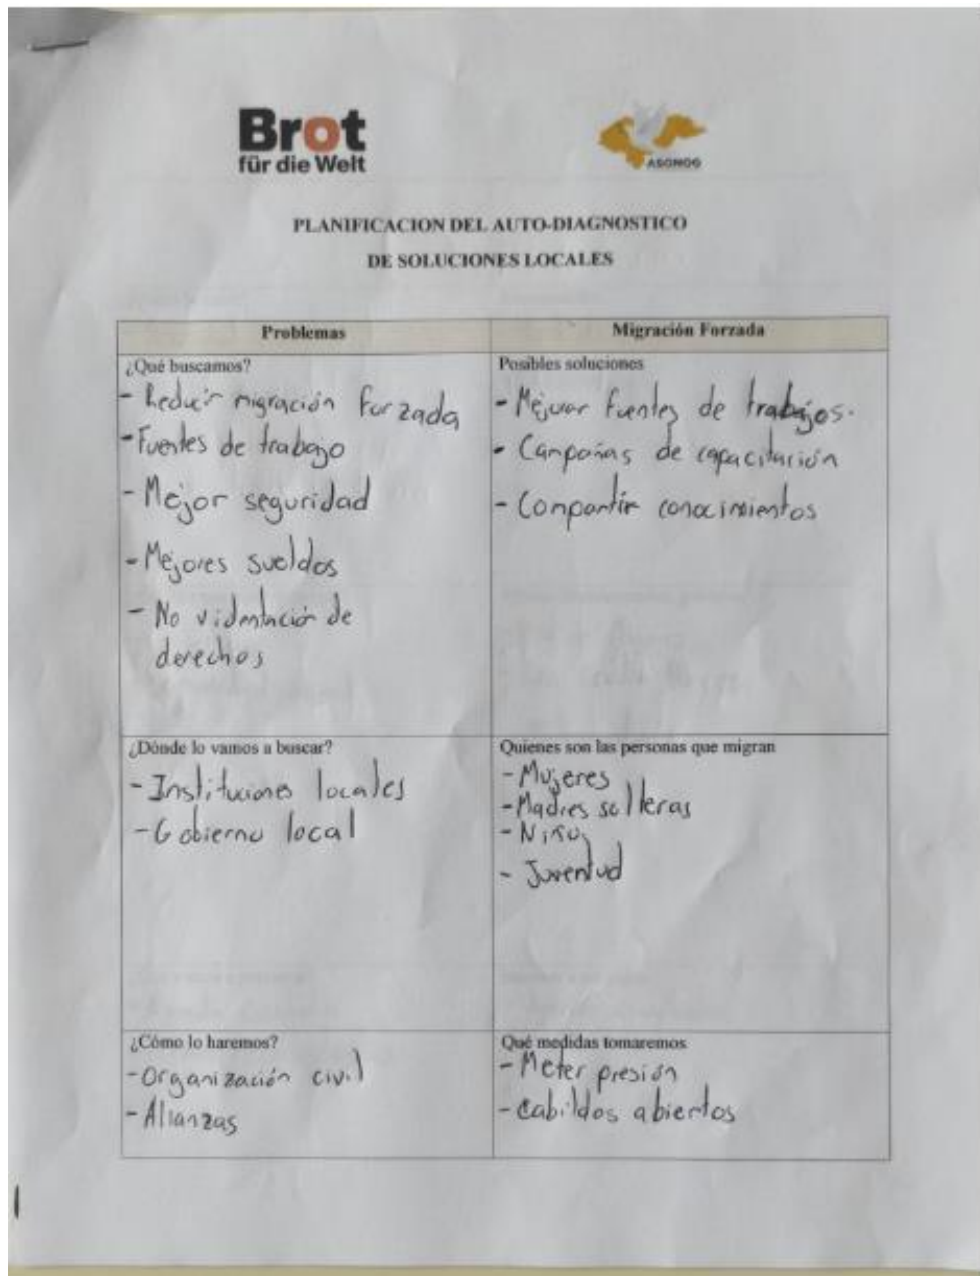 Brot
für die Welt
ASONOG
PLANIFICACION DEL AUTO-DIAGNOSTICO
DE SOLUCIONES LOCALES
Problemas
Migración Forzada
¿Qué buscamos?
- Reducir migración forzada
- Fuentes de trabajo
- Mejor seguridad
- Mejores sueldos
- No videntación de
derechos
Posibles soluciones
- Mejorar fuentes de trabajos.
- Campañas de capacitación
- Compartir conocimientos
¿Dónde lo vamos a buscar?
- Instituciones locales
- Gobierno local
Quienes son las personas que migran
- Mujeres
- Madres solteras
- Niños
- Juventud
¿Cómo lo haremos?
- Organización civil
- Alianzas
Qué medidas tomaremos
- Meter presión
- Cabildos abiertos